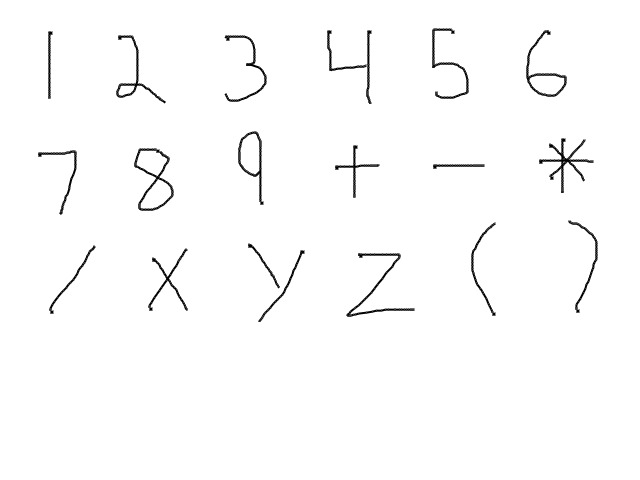 1 2 3 4 5 6
7 8 9 + - *
/ x y z ( )